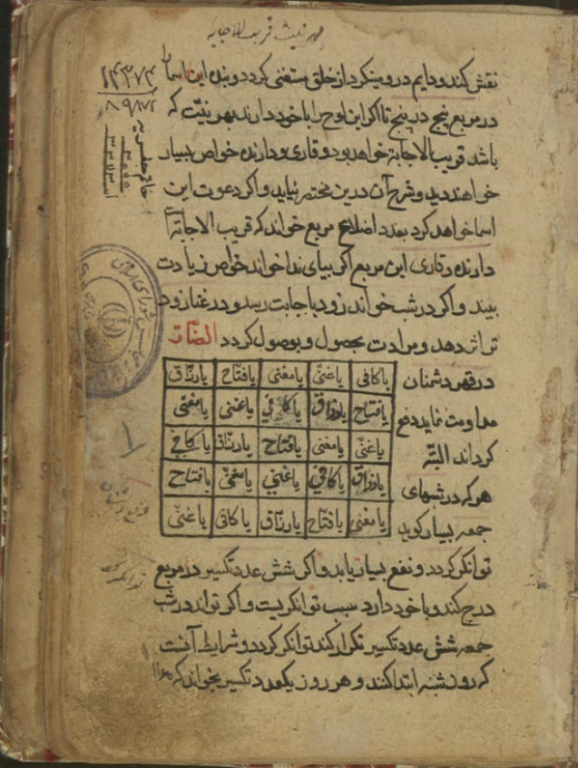 بهر نیت قریب الاجابه
نقش کند و دایم درو مینکرد از خلق مستغنی کردد و بنده این اسما
در مربع پنج در پنج تا اکر این لوح را با خود دارند بهر نیت که
باشد قریب الاجابة خواهد بود و قاری و دارنده خواص بسیار
خواهند دید و شرح آن درین مختصر نیاید و اکر دعوت این
اسما خواهد کرد بعدد اضلاع مربع خواند که قریب الاجابة است
دارنده و قاری این مربع اکر بیای ندا خواند خواص زیادت
بیند و اکر در شب خواند زود باجابت رسد و در غنا زود
تر اثر دهد و مرادت بحصول و بوصول کردد الضّارّ
در قهر دشمنان
مداومت نماید دفع
کرداند البتّه
هر که در شبهای
جمعه بسیار کوید
یا کافی یا غنی یا مغنی یا فتاح یا رزاق
یا فتاح یا رزاق یا کافی یا غنی یا مغنی
یا غنی یا مغنی یا فتاح یا رزاق یا کافی
یا رزاق یا کافی یا غنی یا مغنی یا فتاح
یا مغنی یا فتاح یا رزاق یا کافی یا غنی
توانکر کردد و نفع بسیار یابد و اکر شش عدد تکسیر در مربع
درج کند و با خود دارد سبب توانکریست و اکر تواند در شب
جمعه شش عدد تکسیر تکرار کند توانکر کردد و شرایط آنست
که روز شنبه ابتدا کنند و هر روز یکعدد تکسیر بخواند که